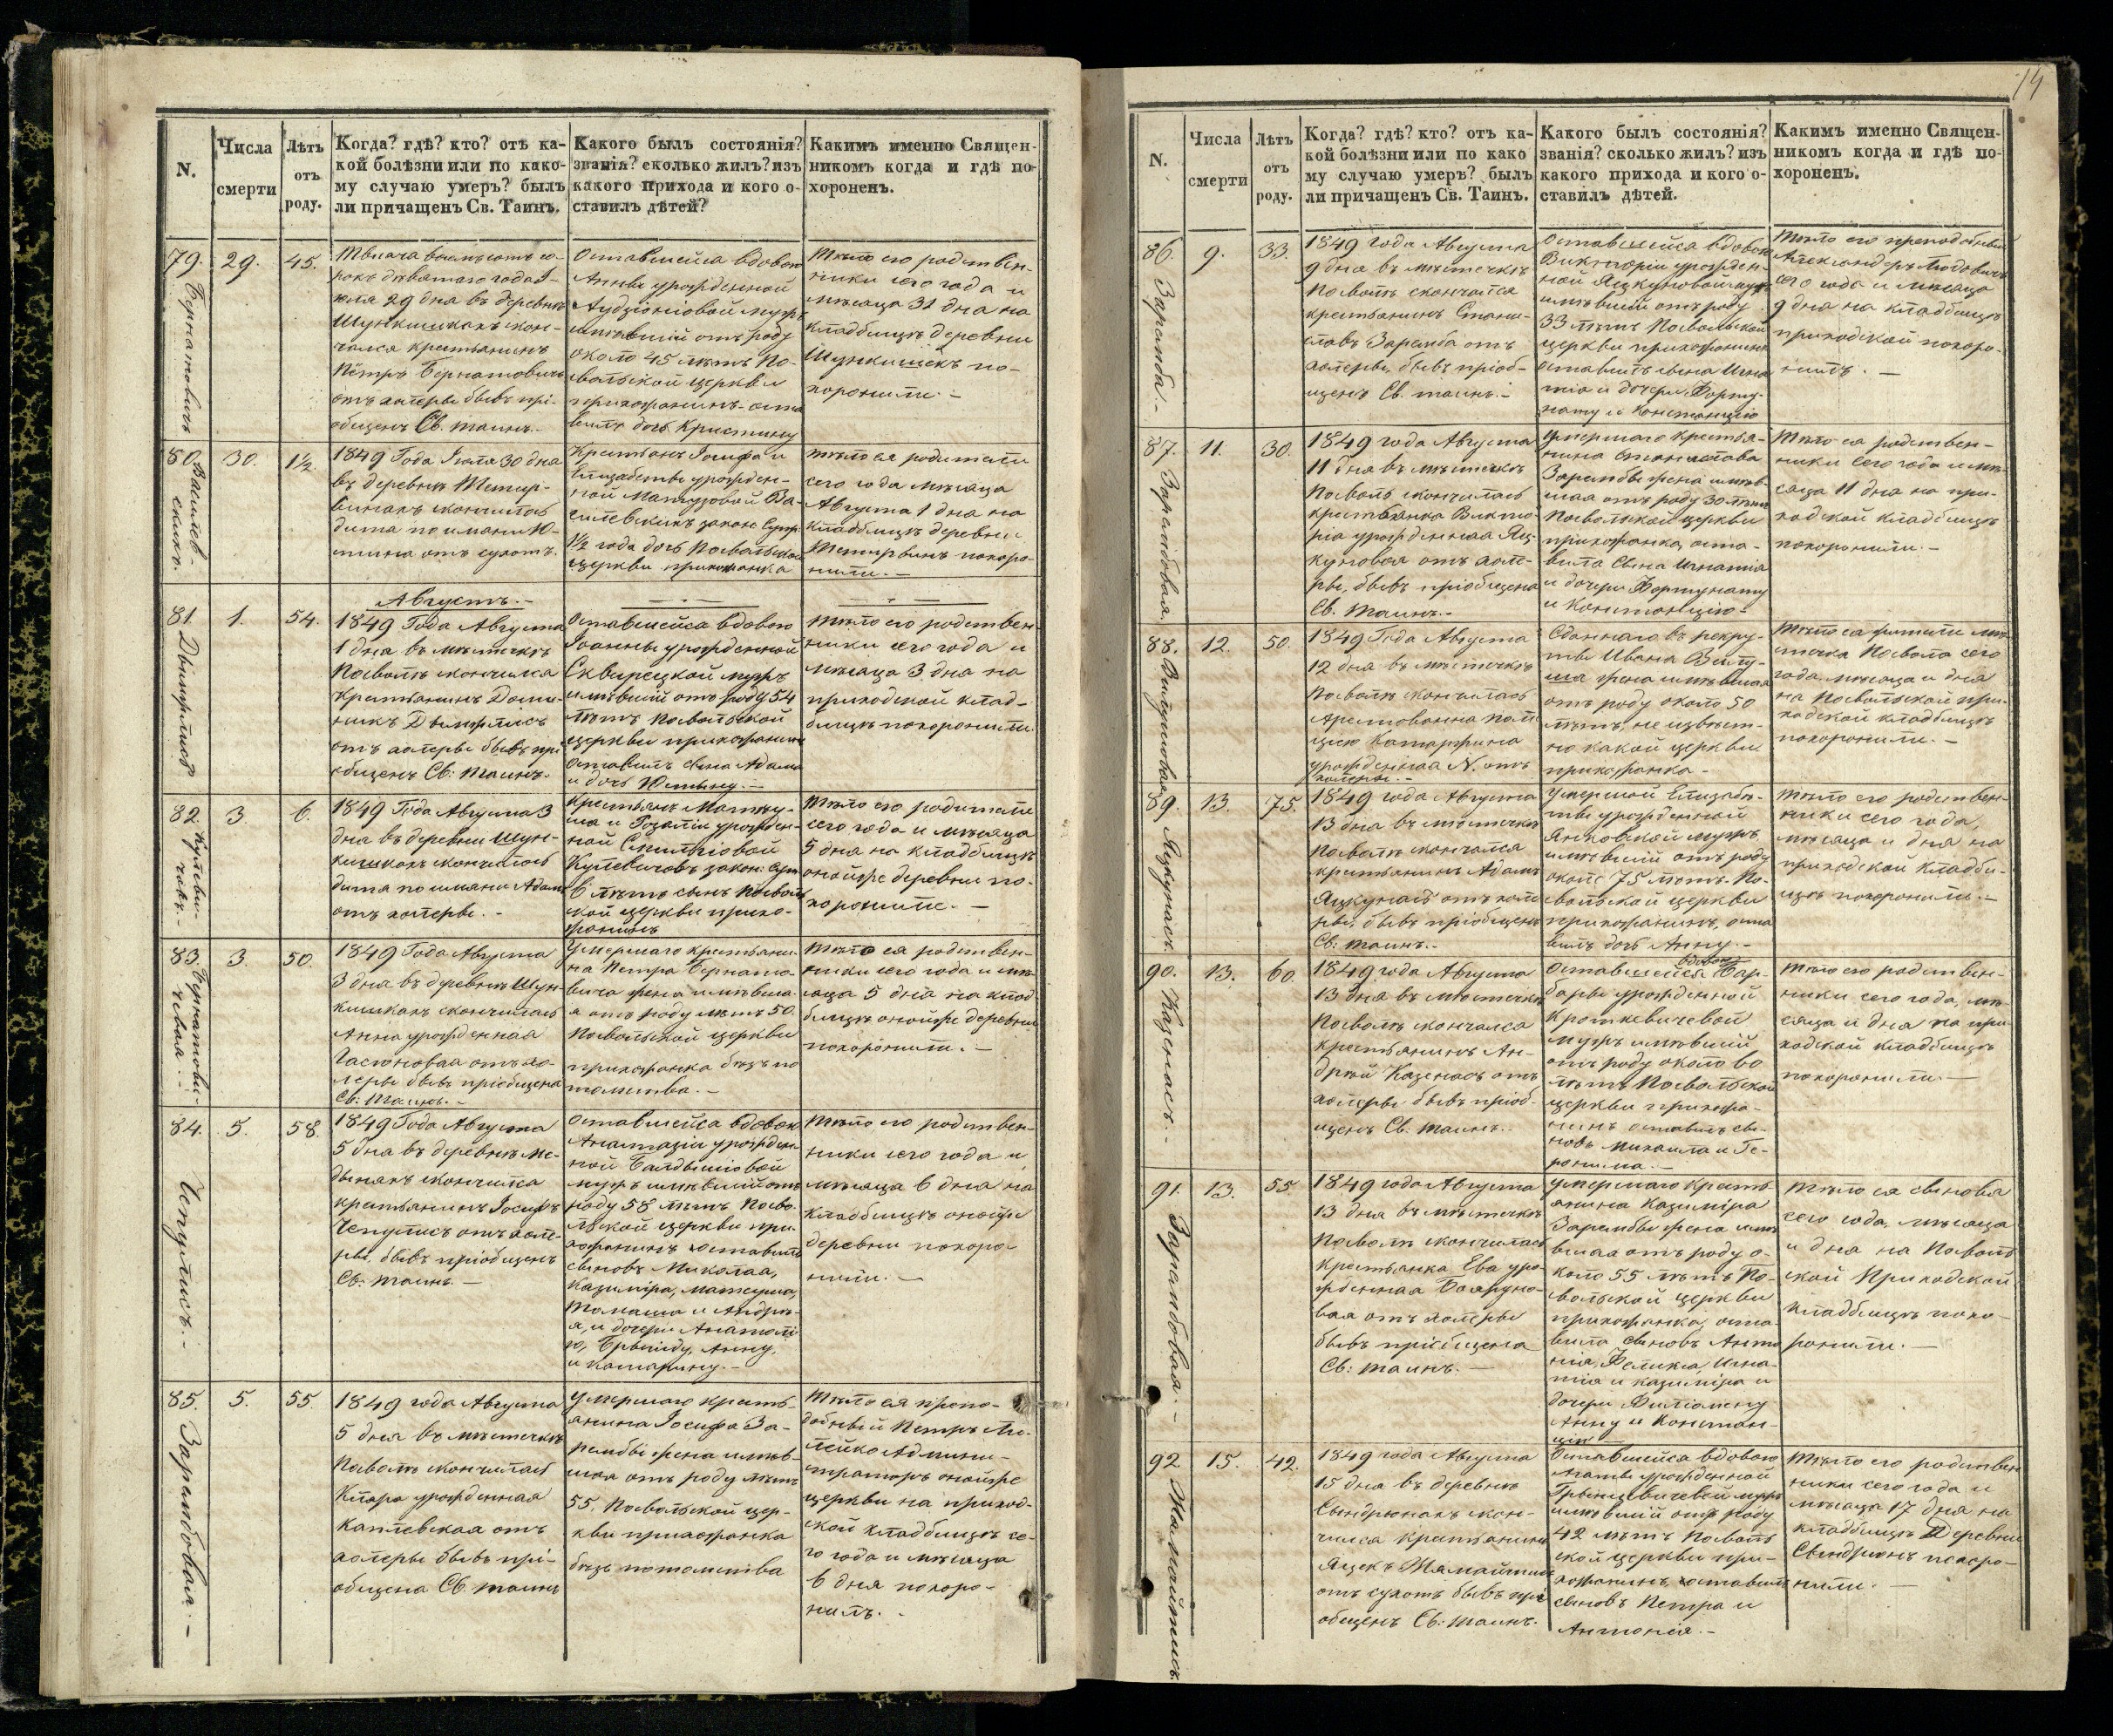 14
N.
Числа
смерти
Лѣтъ
отъ
роду.
Когда? гдѣ? кто? отъ ка-
кой болѣзни или по како-
му случаю умеръ? былъ
ли причащенъ Св. Таинъ.
Какого былъ состоянія?
званія? сколько жилъ? изъ
какого прихода и кого о-
ставилъ дѣтей?
Какимъ именно Священ-
никомъ когда и гдѣ по-
хороненъ.
79.
Бернатовичъ
29.
45.
Тысяча восемьсотъ со-
рокъ девятаго года І-
юля 29 дня въ деревнѣ
Шункишкахъ скон-
чался крестьянинъ
Пётръ Бернатовичъ
отъ холеры бывъ прі-
общенъ Св. таинъ.-
Оставшейся вдовою
Анны урожденной
мужъ
имѣвшій отъ роду
около 45 лѣтъ По-
вольской церкви
прихожанинъ-оста
вилъ дочь Кристину
Тѣло его родствен-
ники сего года и
мѣсяца 31 дня на
кладбищѣ деревни
Шункишекъ по-
хоронили.-
80.
Василев-
скихъ.
30.
1½
1849 Года Іюля 30 дня
въ деревнѣ Тетир-
винахъ скончилось
дитя по имяни Ю-
стина отъ сухотъ.
Крестьянъ Іосифа и
Елизабеты урожден-
ной Матузовой Ва-
силевскихъ закон: Супр:
1½ года дочь Повольской
церкви прихожанка
тѣло ея родители
сего года мѣсяца
Августа 1 дня на
кладбищѣ деревни
Тетирвинъ похоро-
нили.-
Августъ.-
81.
Дымжлисъ
1.
54.
1849 Года Августа
1 дня въ мѣстечкѣ
Поволѣ скончился
Крестьянинъ Доми-
никъ Дымжлисъ
отъ холеры бывъ прі
общенъ Св: Таинъ.
Оставшейся вдовою
Іоанны урожденной
Сквирецкой мужъ
имѣвшій отъ роду 54
лѣтъ Повольской
церкви прихожанинъ
оставилъ сына Адама
и дочь Юстыну.-
тѣло его родствен
ники сего года и
мѣсяца 3 дня на
приходской клад-
бищѣ похоронили.
82.
Кулеви-
човъ.-
3.
6.
1849 Года Августа 3
дня въ деревни Шун-
кишкахъ скончилось
дитя по имяни Адамъ
отъ холеры.-
Крестьянъ Матеу-
ша и Розаліи урожден-
ной
Кулевичовъ закон: супр
6 лѣтъ сынъ Поволь
ской церкви прихо-
жанинъ
Тѣло его родители
сего года и мѣсяца
5 дня на кладбищѣ
онойже деревни по-
хоронили.-
83.
Бернатови-
чевая.-
3.
50.
1849 Года Августа
3 дня въ деревнѣ Шун-
кишкахъ скончилась
Анна урожденная
Гасюновая отъ хо-
леры бывъ пріобщена
Св: Таинъ.-
Умершаго крестьяни-
на Петра Бернато-
вича жена имѣвша-
я отъ роду лѣтъ 50.
Повольской церкви
прихожанка безъ по
томства.-
Тѣло ея родствен-
ники сего года и мѣ-
сяца 5 дня на клад-
бищѣ онойже деревни
похоронили.-
84.
Чепулисъ.-
5.
58.
1849 Года Августа
5 дня въ деревнѣ Ме-
дынахъ скончился
крестьянинъ Іосифъ
Чепулисъ отъ холе-
ры, бывъ пріобщенъ
Св. таинъ.-
Оставшейся вдовою
Анастазіи урожден-
ной Балдышовой
мужъ имѣвшій отъ
роду 58 лѣтъ Пово-
льской церкви при-
хожанинъ оставилъ
сыновъ Миколая,
Казиміра, Матеуша,
Томаша и Андре-
я, и дочери Анатолі
ю, Брыгиду, Анну,
и Катарину.-
Тѣло его родствен-
ники сего года и
мѣсяца 6 дня на
кладбищѣ онойже
деревни похоро-
нили.-
85.
Зарембовая.-
5.
55.
1849 года Августа
5 дня въ мѣстечкѣ
Поволѣ скончилась
Клара урожденная
отъ
холеры бывъ прі-
общена Св. таинъ
Умершаго кресть-
янина Іосифа За-
рембы жена имѣв-
шая отъ роду лѣтъ
55. Повольской цер-
кви прихожанка
безъ потомства
Тѣло ея препо-
добный Петръ
Админи-
страторъ онойже
церкви на приход-
ской кладбищѣ се-
го года и мѣсяца
6 дня похоро-
нилъ.-
N.
Числа
смерти
Лѣтъ
отъ
роду.
Когда? гдѣ? кто? отъ ка-
кой болѣзни или по како
му случаю умеръ? былъ
ли причащенъ Св. Таинъ.
Какого былъ состоянія?
званія? сколько жилъ? изъ
какого прихода и кого о-
ставилъ дѣтей.
Какимъ именно Священ-
никомъ когда и гдѣ по-
хороненъ.
86.
Заремба.-
9.
33.
1849 года Августа
9 дня въ мѣстечкѣ
Поволѣ скончался
крестьянинъ Стани-
славъ Заремба отъ
холеры, бывъ пріоб-
щенъ Св. таинъ.-
Оставшейся вдовою
Викторіи урожден-
ной Яцкуновой мужъ
имѣвшій отъ роду
33 лѣтъ Повольской
церкви прихожанинъ
оставилъ сына Игна
тія и дочери Форту-
нату и Констанцію
Тѣло его преподобный
Александеръ
сего года и мѣсяца
9 дня на кладбищѣ
приходской похоро-
нилъ.-
87.
Зарембовая.
11.
30.
1849 года Августа
11 дня въ мѣстечкѣ
Поволѣ скончилась
крестьянка Викто-
рія урожденная Яц-
куновая отъ холе-
ры, бывъ пріобщена
Св. Таинъ.-
Умершаго крестья-
нина Станислава
Зарембы жена имѣв-
шая отъ роду 30 лѣтъ
Повольской церкви
прихожанка, оста-
вила Сына Игнатія
и дочери Фортунату
и Констанцію-
Тѣло ея родствен-
ники сего года и мѣ-
сяца 11 дня на при-
ходской кладбищѣ
похоронили.-
88.
12.
50.
1849 Года Августа
12 дня въ мѣстечкѣ
Поволѣ скончилась
Арестованна поли
цею Катаржина
урожденная N. отъ
холеры.-
Сданнаго въ рекру-
ты Ивана
жена имѣвшая
отъ роду около 50
лѣтъ, не извѣст-
но какой церкви
прихожанка-
Тѣло ея жители мѣ-
стечка Поволя сего
года, мѣсяца и дня
на Повольской при-
ходской кладбищѣ
похоронили.-
89.
Яцкунасъ.
13.
75.
1849 года Августа
13 дня въ мѣстечкѣ
Поволѣ скончался
крестьянинъ Адамъ
Яцкунасъ отъ холе
ры, бывъ пріобщенъ
Св: таинъ.-
Умершой Елизабе-
ты урожденной
Янковской мужъ
имѣвшій отъ роду
около 75 лѣтъ. По-
вольской церкви
прихожанинъ, оста
вилъ дочь Анну.-
тѣло его родствен-
ники сего года,
мѣсяца и дня на
приходской кладби-
щѣ похоронили.-
90.
Казенасъ.-
13.
60.
1849 года Августа
13 дня въ мѣстечкѣ
Поволѣ скончался
крестьянинъ Ан-
дрей Казенасъ отъ
холеры бывъ пріоб-
щенъ Св. таинъ.-
вдовою
Оставшейся Бар-
бары урожденной
Кроткевичевой
мужъ имѣвшій
отъ роду около 60
лѣтъ Повольской
церкви прихожа-
нинъ оставилъ сы-
новъ Михаила и Ге-
ронима.-
тѣло его родствен-
ники сего года, мѣ-
сяца и дня на при-
ходской кладбищѣ
похоронили.-
91.
Зарембовая.-
13.
55
1849 года Августа
13 дня въ мѣстечкѣ
Поволѣ скончилась
крестьянка Ева уро-
жденная
отъ холеры
бывъ пріобщена
Св: таинъ.-
Умершаго кресть
янина Казиміра
Зарембы жена имѣ
вшая отъ роду о-
коло 55 лѣтъ По-
вольской церкви
прихожанка, оста-
вила сыновъ Анто
нія, Феликса, Игна-
тія и Казиміра и
дочери Филіомену
Анну и Констан-
цію-
тѣло ея сыновья
сего года, мѣсяца
и дня на Поволь
ской Приходской
кладбищѣ похо-
ронили.-
92
15.
42.
1849 года Августа
15 дня въ деревнѣ
Свиндрюнахъ скон-
чился крестьянинъ
Яцекъ
отъ сухотъ бывъ прі
общенъ Св: таинъ.
Оставшейся вдовою
Агаты урожденной
мужъ
имѣвшій отъ роду
42 лѣтъ Поволь
ской церкви при-
хожанинъ, оставилъ
сыновъ Петра и
Антонія.-
Тѣло его родствен
ники сего года и
мѣсяца 17 дня на
кладбищѣ Деревни
похоро-
нили.-